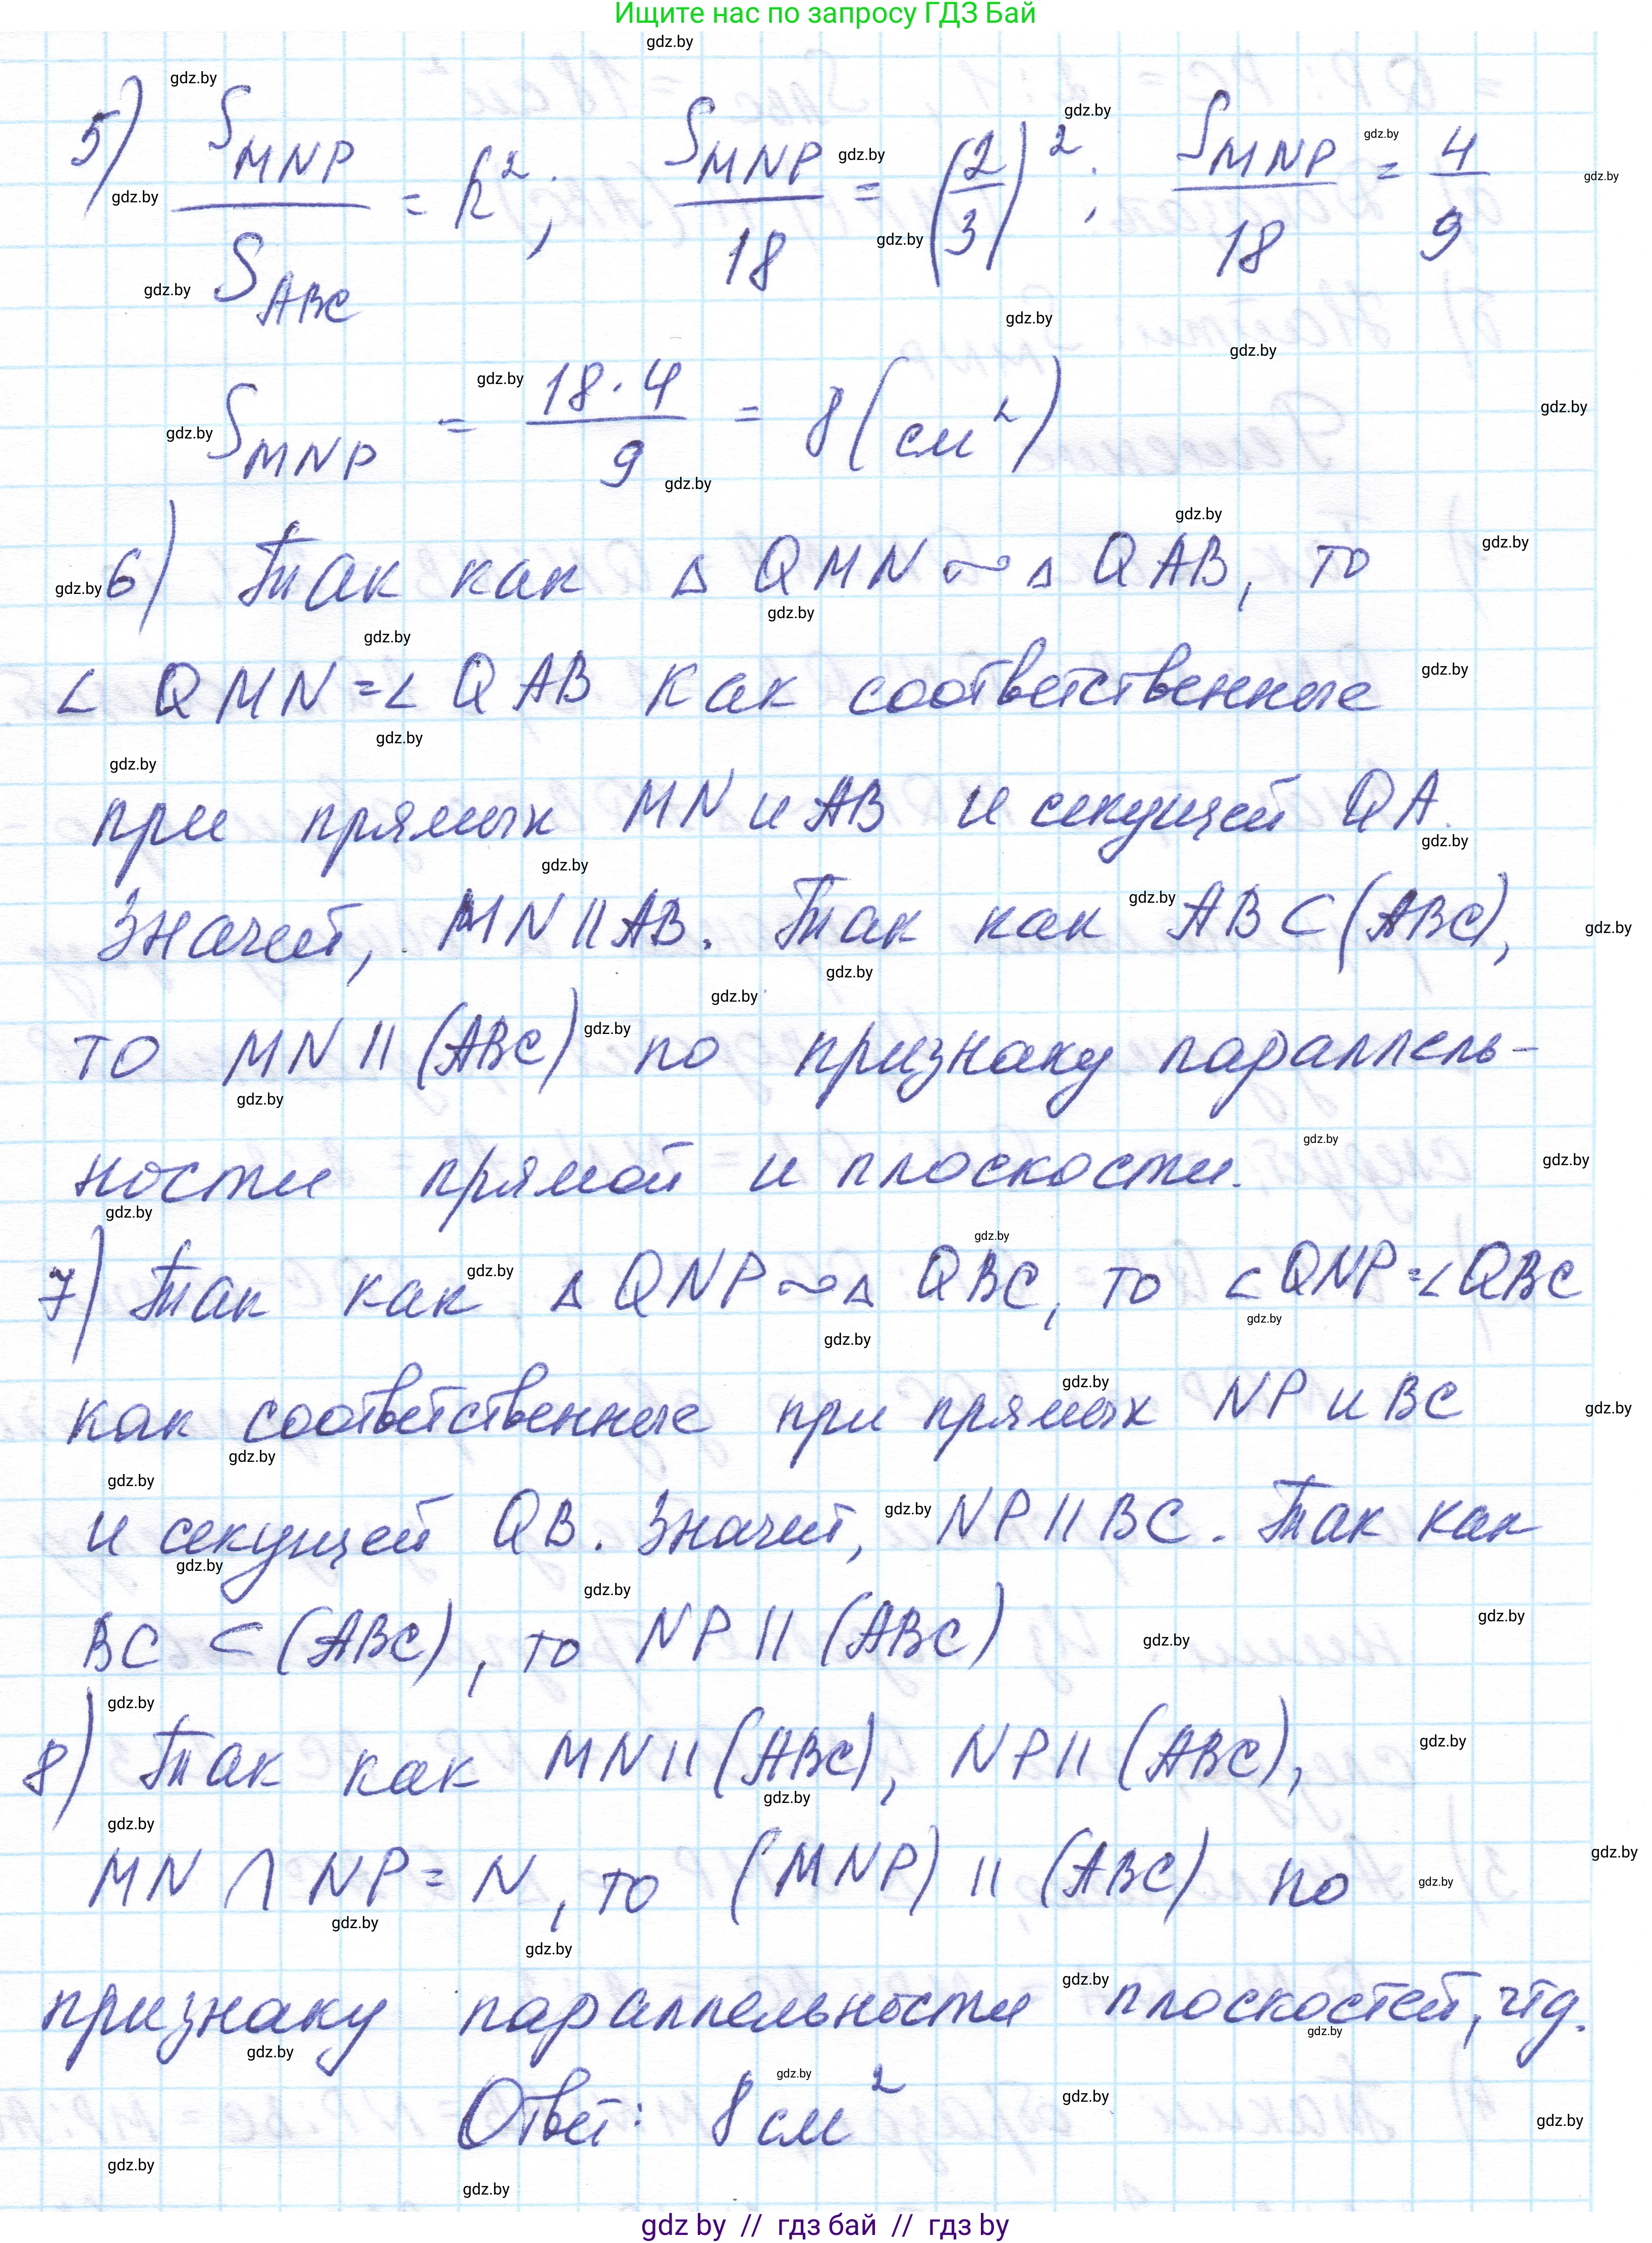 Ищите нас по запросу ГДЗ Бай
5) S_MNP / S_ABC = k²; S_MNP / 18 = (2/3)²; S_MNP / 18 = 4/9
S_MNP = 18·4 / 9 = 8 (см²)
6) Так как Δ QMN ~ Δ QAB, то
∠ QMN = ∠ QAB как соответственные
при прямых MN и AB и секущей QA.
Значит, MN || AB. Так как AB ⊂ (ABC),
то MN || (ABC) по признаку параллель-
ности прямой и плоскости.
7) Так как Δ QNP ~ Δ QBC, то ∠QNP = ∠QBC
как соответственные при прямых NP и BC
и секущей QB. Значит, NP || BC. Так как
BC ⊂ (ABC), то NP || (ABC)
8) Так как MN || (ABC), NP || (ABC),
MN ∩ NP = N, то (MNP) || (ABC) по
признаку параллельности плоскостей, чтд.
Ответ: 8 см²
gdz by // гдз бай // гдз by